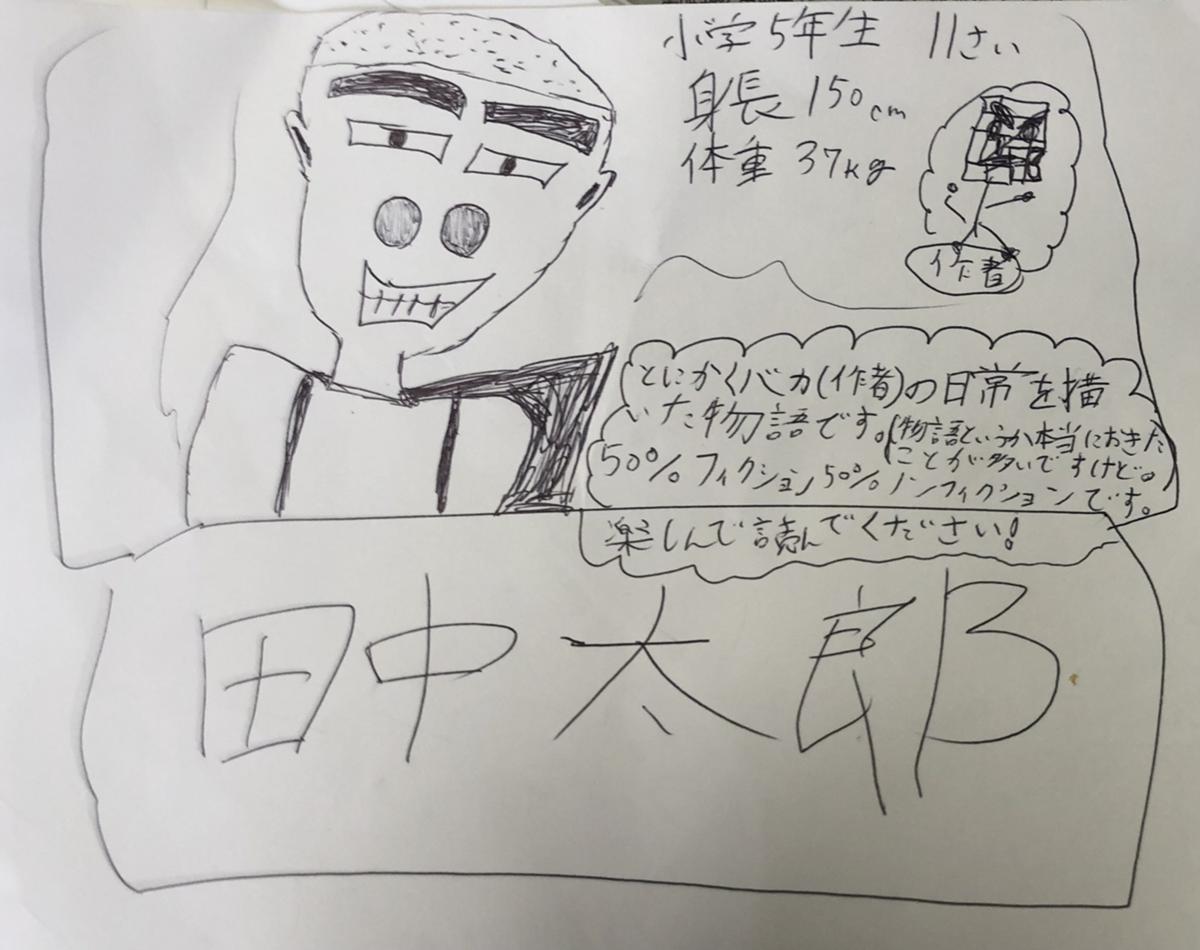 小学5年生 11さい
身長 150cm
体重 37kg
作者
とにかくバカ(作者)の日常を描
いた物語です。(物語というか本当におきた
ことが多いですけど。
50%フィクション50%ノンフィクションです。
楽しんで読んでください!
田中太郎